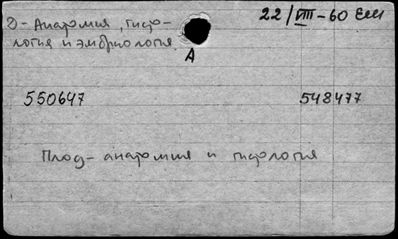 2 - Анатомия, гисто-
22/VIII-60 Емм
логия и эмбриология
А
550647
548477
Плод - анатомия и гистология